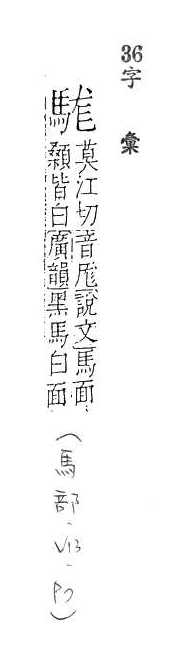 36字彙
駹 莫江切音厖說文馬面
顙皆白廣韻黑馬白面
(馬部.V13.P7)